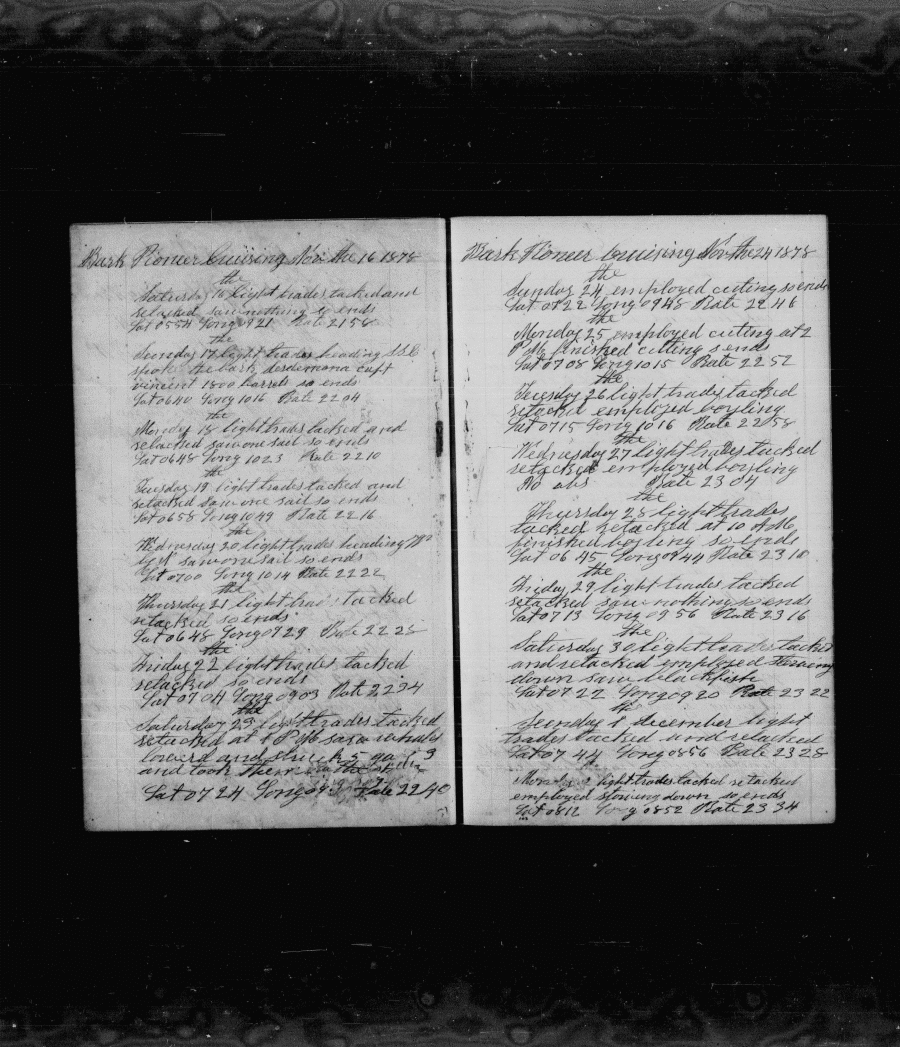 Bark Pioneer Cruising Nov the 16 1878
the
Saturday 16 light trades tacked and
retacked saw nothing so ends
Lat 0554 Long 0921 Rate 2158
the
Sunday 17 light trades heading SSE
spoke the bark desdemona capt
vincent 1800 barrels so ends
Lat 0640 Long 1016 Rate 22 04
the
Monday 18 light trads tacked and
retacked saw one sail so ends
Lat 0648 Long 1023 Rate 2210
the
Tuesday 19 light trades tacked and
retacked Saw one sail so ends
Lat 0658 Long 1049 Rate 22 16
the
Wednesday 20 light trades heading
saw one sail so ends
Lat 0700 Long 1014 Rate 2222
the
Thursday 21 light trades tacked
retacked so ends
Lat 0648 Long 0929 Rate 22 28
the
Friday 22 light trades tacked
retacked so ends
Lat 0704 Long 0903 Rate 2234
the
Saturday 23 light trades tacked
retacked at 1 PM saw whales
lowerd and struck 5
and took them
Lat 07 24 Long Rate 22 40
Bark Pioneer Cruising Nov the 24 1878
the
Sunday 24 employed cuting so ends
Lat 0722 Long 0948 Rate 22 46
the
Monday 25 employed cutting at 2
PM finished cuting s ends
Lat 0708 Long 1015 Rate 22 52
the
Tuesday 26 light trades tacked
retacked employed boyling
Lat 0715 Long 1016 Rate 2258
the
Wednesday 27 light trades tacked
retacked employed boyling
No obs Rate 23 04
the
Thursday 28 light trades
tacked retacked at 10 AM
finished boyling so ends
Lat 06 45 Long 0944 Rate 23 10
the
Friday 29 light trades tacked
retacked saw nothing so ends
Lat 0713 Long 0956 Rate 23 16
the
Saturday 30 light trades tacked
and retacked employed
down saw blackfish
Lat 07 22 Long 0920 Rate 23 22
the
Sunday 1 december light
trades tacked and retacked
Lat 07 44 Long 0856 Rate 23 28
Monday 2 light trades tacked retacked
employed stowing down so ends
Lat 0812 Long 0852 Rate 23 34